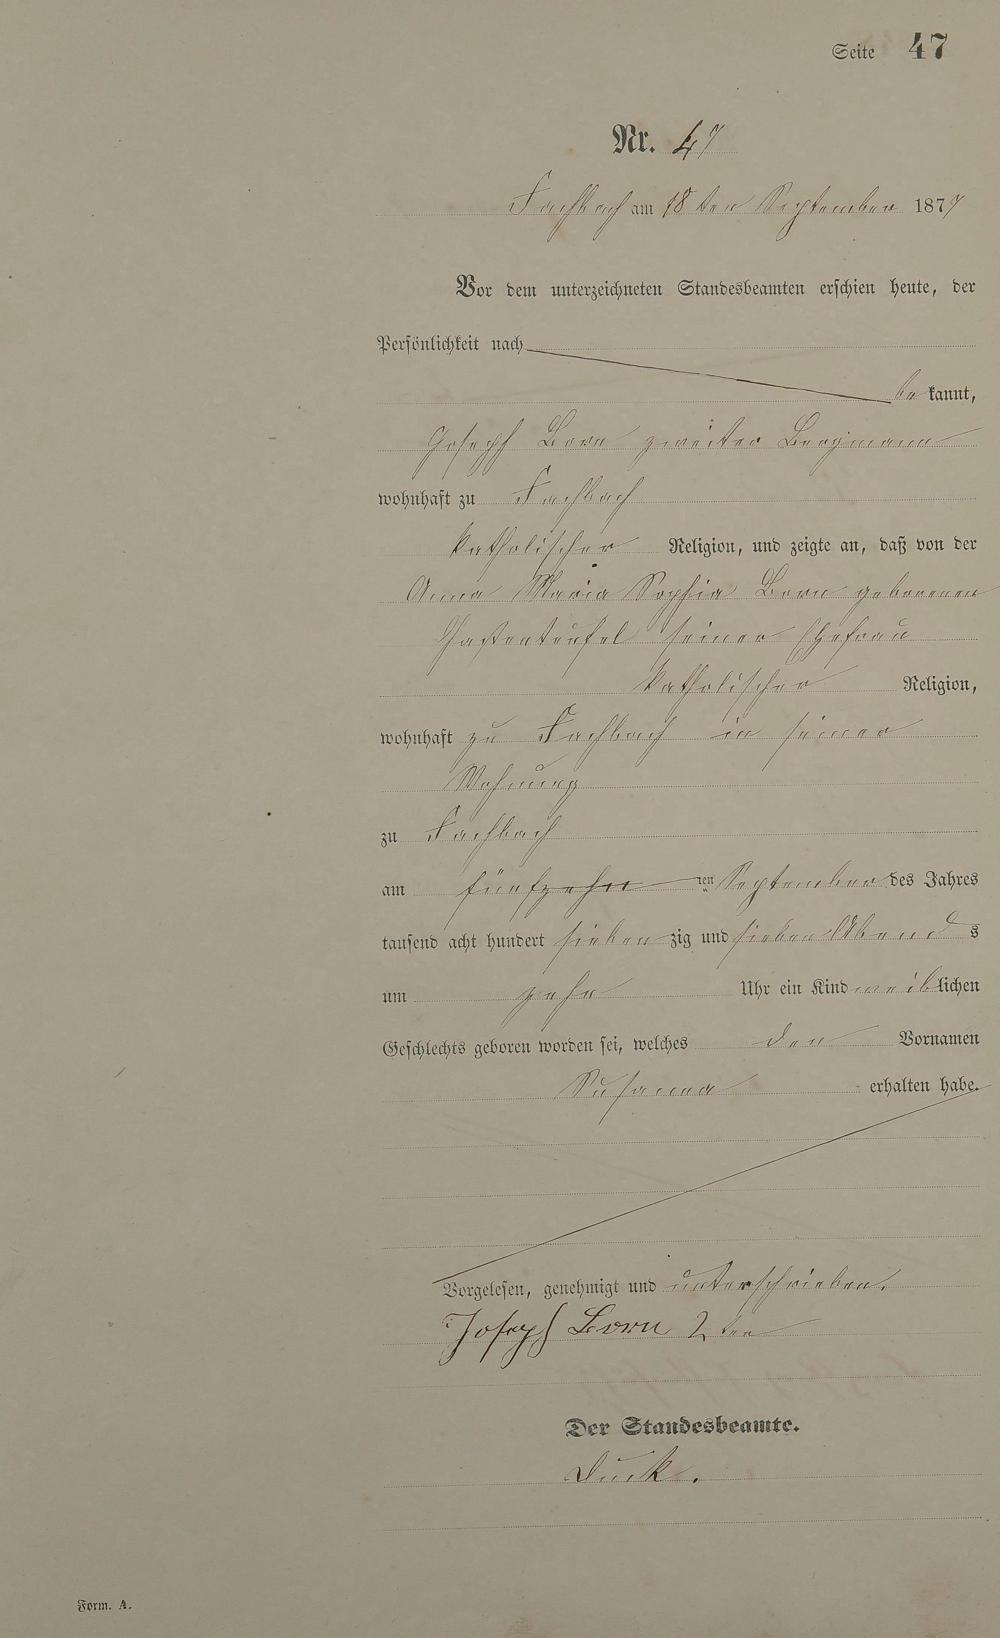 Seite 47
Nr. 47
Fachbach am 18ten September 1877
Vor dem unterzeichneten Standesbeamten erschien heute, der
Persönlichkeit nach
bekannt,
Joseph Born zweiter Bergmann
wohnhaft zu Fachbach
katholischer Religion, und zeigte an, daß von der
Anna Maria Sophia Born geborenen
seiner Ehefrau
katholischer Religion,
wohnhaft zu Fachbach in seiner
Wohnung
zu Fachbach
am fünfzehn ten September des Jahres
tausend acht hundert siebenzig und sieben Abends
um zehn Uhr ein Kind weiblichen
Geschlechts geboren worden sei, welches den Vornamen
Susanna erhalten habe.
Vorgelesen, genehmigt und unterschrieben.
Joseph Born 2ter
Der Standesbeamte.
Duck.
Form. A.